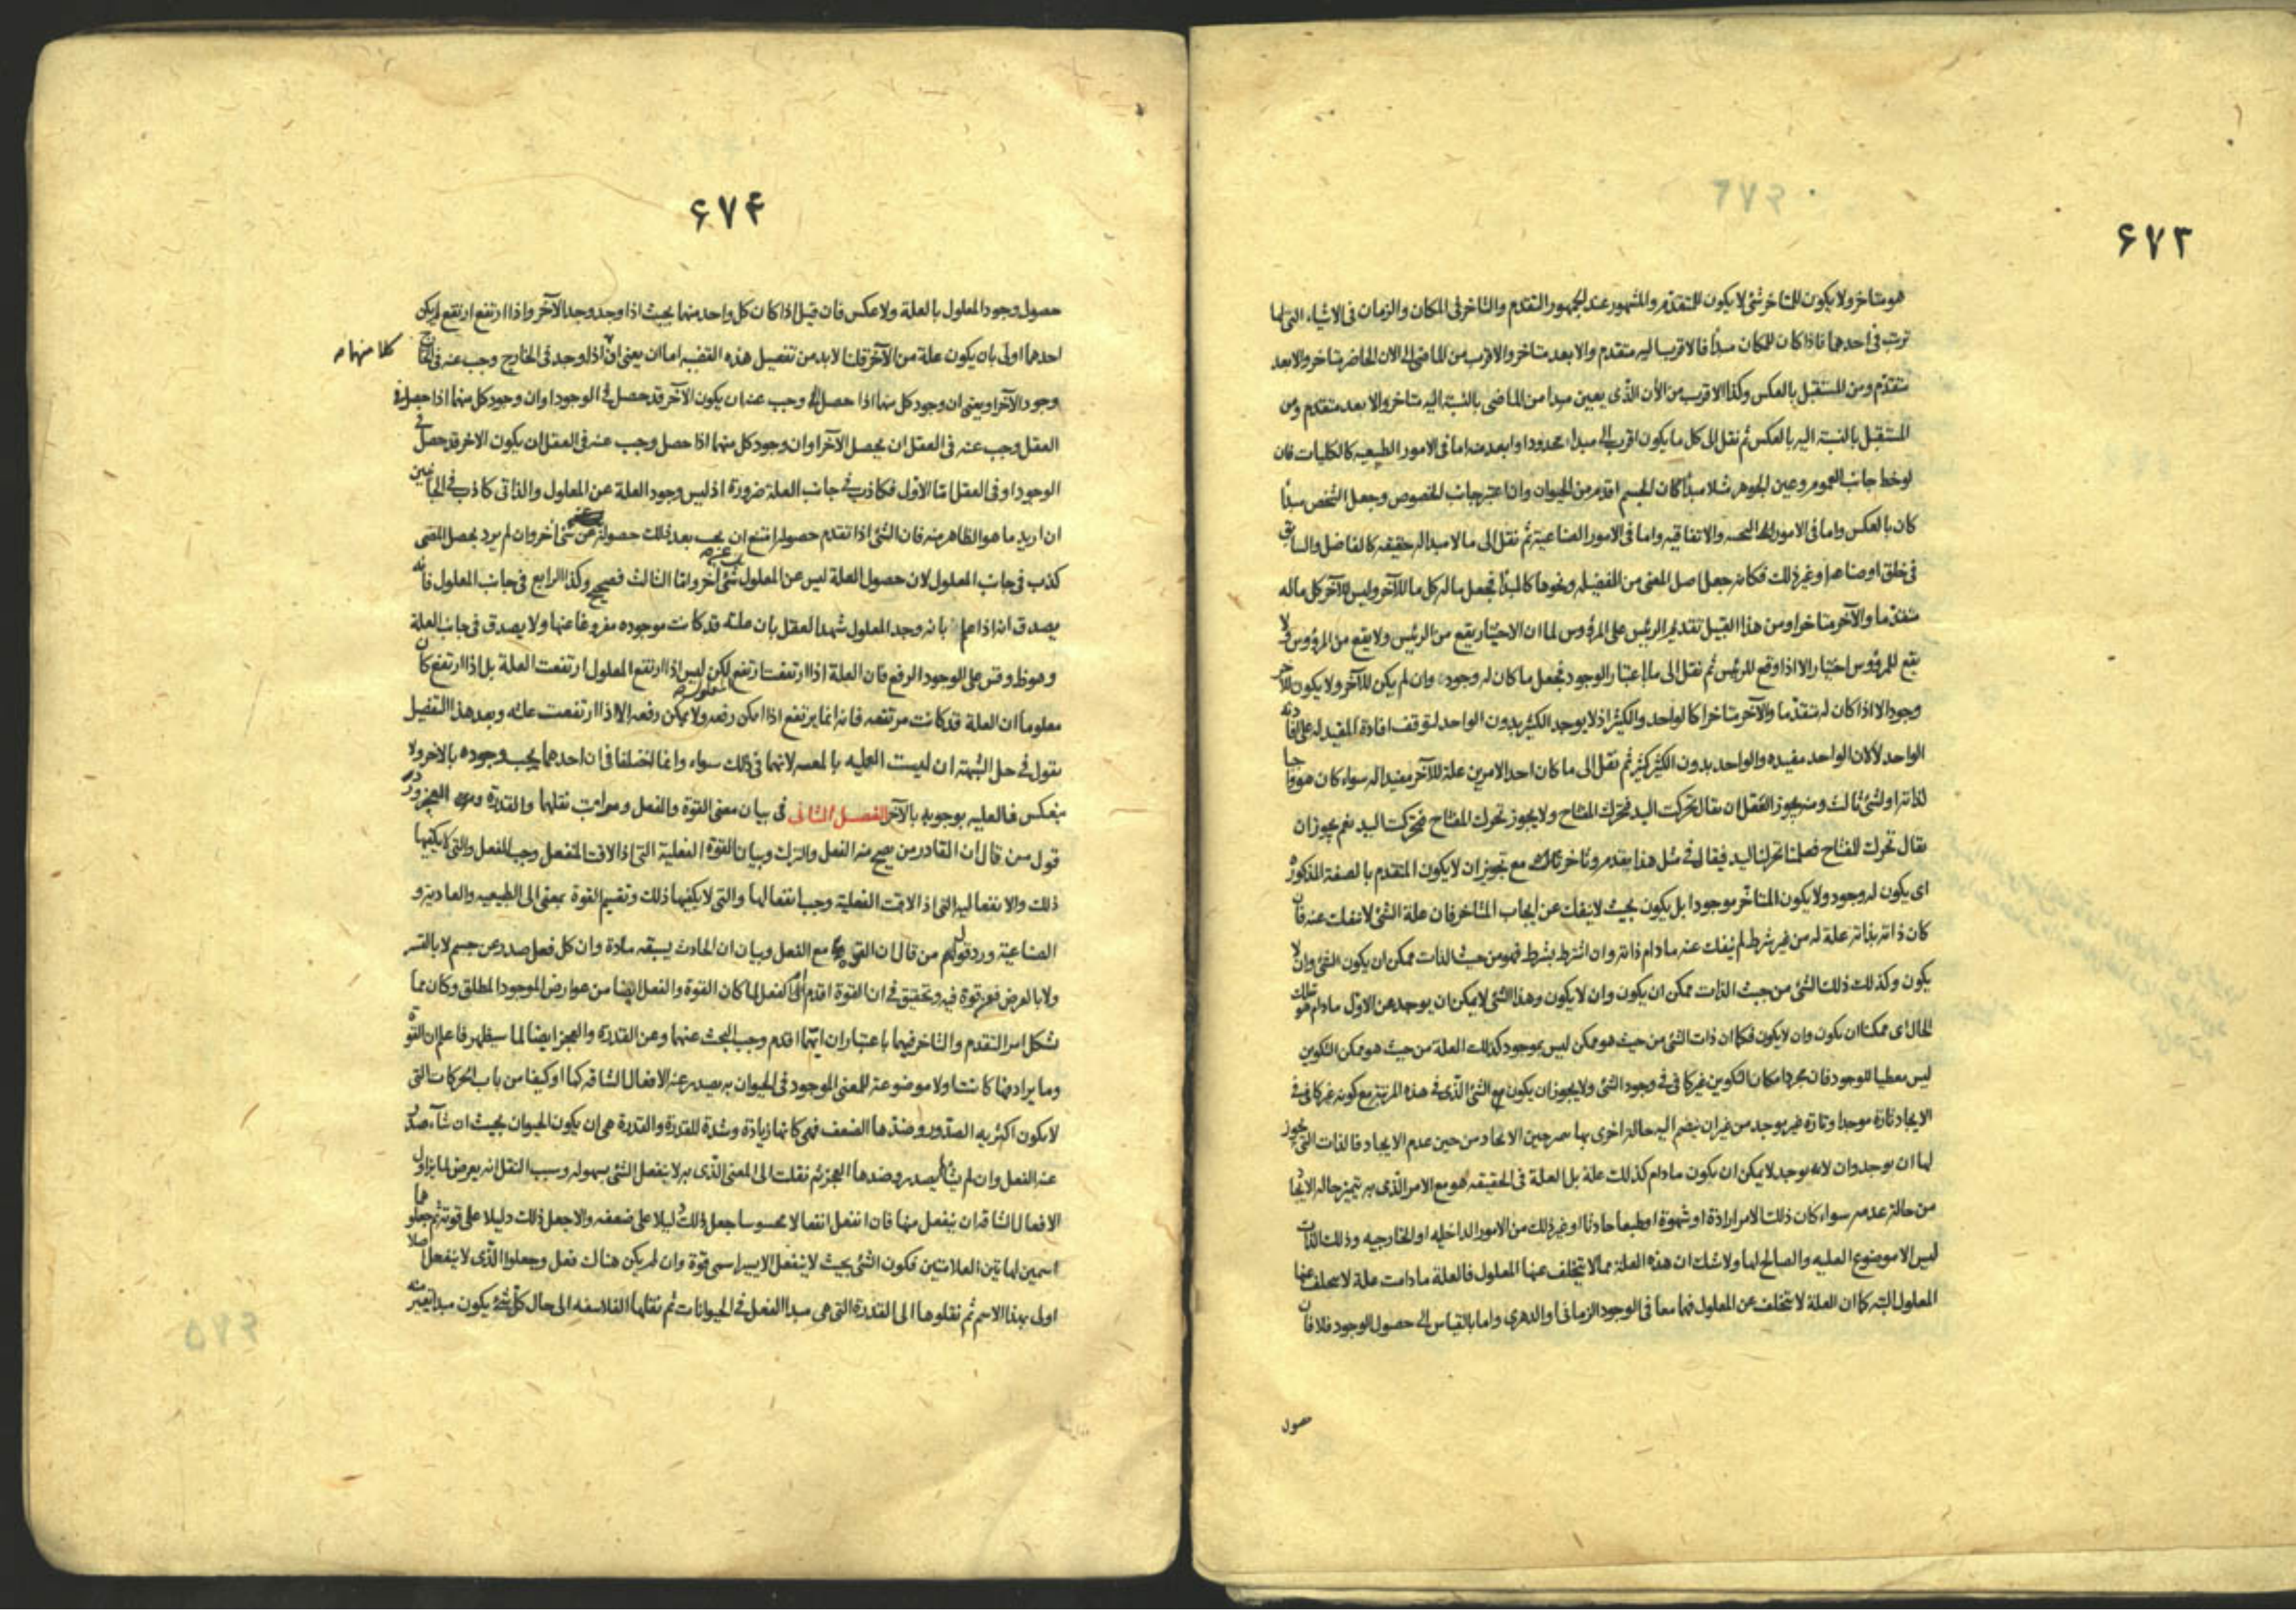 ۶۷۳
هو متاخر ولا يكون للمتاخر شئ لا يكون للمتقدم والمشهور عند الجمهور التقدم والتاخر فى المكان والزمان فى الاشياء التى لها
ترتب فى احدهما فاذا كان للمكان مبدأ فالاقرب اليه متقدم والابعد متاخر والاقرب من الماضى الى الان الحاضر متاخر والابعد
متقدم ومن المستقبل بالعكس وكذا الاقرب من الأن الذى يعين مبدا من الماضى بالنسبة اليه متاخر والابعد متقدم ومن
المستقبل بالنسبة اليه بالعكس ثم نقل الى كل ما يكون اقرب الى مبداء محدود او ابعد منه اما فى الامور الطبيعيه كالكليات فان
لوحظ جانب العموم وعين الجوهر مثلا مبدأ كان الجسم اقدم من الحيوان وان اعتبر جانب الخصوص وجعل الشخص مبدأ
كان بالعكس واما فى الامور والاتفاقيه واما فى الامور الصناعية ثم نقل الى مالا مبدا له حقيقه كالفاضل والسابق
فى خلق او صناعه او غير ذلك فكانه جعل اصل المعنى من الفضيله ونحوها كالمبدأ فجعل ما له كل ما للآخر وليس للآخر كل ماله
متقدما والآخر متاخرا ومن هذا القبيل تقديم الرئيس على المرؤوس لما ان الاختيار يقع من الرئيس ولا يقع من المرؤوس ولا
يقع للمرؤوس اختيار الا اذا وقع للرئيس ثم نقل الى ما باعتبار الوجود فجعل ما كان له وجود وان لم يكن للآخر ولا يكون للآخر
وجود الا اذا كان له متقدما والآخر متاخرا كالواحد والكثير اذ لا يوجد الكثير بدون الواحد لتوقف افادة المقيد له على افادته
الواحد لا لان الواحد مفيده والواحد بدون الكثير كثير ثم نقل الى ما كان احد الامرين علة للآخر مفيدا له سواء كان هو واجبا
لذاته او لشئ ثالث ومنه يجوز العقل ان يقال تحركت اليد فتحرك المفتاح ولا يجوز تحرك المفتاح فتحركت اليد نعم يجوز ان
يقال تحرك المفتاح فعلمنا تحرك اليد فيقال فى مثل هذا تقدم وتاخر مع تجويز ان لا يكون المتقدم بالصفة المذكوره
اى يكون له وجود ولا يكون المتاخر موجودا بل يكون بحيث لا ينفك عن ايجاب المتاخر فان علة الشئ لا ينفك عنه فان
كان ذاته بذاته علة له من غير شرط لم ينفك عنه ما دام ذاته وان اشترط بشرط فهو من حيث الذات ممكن ان يكون الشئ وان لا
يكون وكذلك ذلك الشئ من حيث الذات ممكن ان يكون وان لا يكون وهذا الشئ لا يمكن ان يوجد عن الاول ما دام هو تلك
الحال اى ممكنا ان يكون وان لا يكون فكما ان ذات الشئ من حيث هو ممكن ليس بموجود كذلك العلة من حيث هو ممكن التكوين
ليس معطيا للوجود فان مجرد امكان التكوين غير كافى فى وجود الشئ ولا يجوز ان يكون مع الشئ الذى فى هذه المرتبة مع كونه غير كافى فى
الايجاد تارة موجدا وتارة غير موجد من غير ان ينضم اليه حالة اخرى بها حين الايجاد من حين عدم الايجاد فالذات التى يجوز
لها ان يوجد وان لا يوجد لا يمكن ان يكون ما دام كذلك علة بل العلة فى الحقيقه هو مع الامر الذى به يتميز حاله الايجاد
من حالة عدمه سواء كان ذلك الامر ارادة او شهوة او طبعا حادثا او غير ذلك من الامور الداخليه او الخارجيه وذلك الذات
ليس الا موضوع العليه والصالح لها ولا شك ان هذه العلة مما لا يتخلف عنها المعلول فالعلة ما دامت علة لا يتخلف عنها
المعلول البته كما ان العلة لا تتخلف عن المعلول فهما معا فى الوجود الزمانى او الدهرى واما بالقياس الى حصول الوجود فلا فان
حصول
۶۷۴
حصول وجود المعلول بالعلة ولا عكس فان قيل اذا كان كل واحد منهما بحيث اذا وجد وجد الآخر واذا ارتفع ارتفع لم يكن
احدهما اولى بان يكون علة من الآخر قلنا لا بد من تفصيل هذه القضيه اما ان يعنى ان اذا وجد فى الخارج وجب عنه فى الخارج
كلا منهما
وجود الآخر او يعنى ان وجود كل منهما اذا حصل وجب عنه ان يكون الآخر قد حصل فى الوجود او ان وجود كل منهما اذا حصل فى
العقل وجب عنه فى العقل ان يحصل الآخر او ان وجود كل منهما اذا حصل وجب عنه فى العقل ان يكون الاخر قد حصل فى
الوجود او فى العقل اما الاول فكاذب فى جانب العلة ضرورة اذ ليس وجود العلة عن المعلول والثانى كاذب فى الجانبين
ان اريد ما هو الظاهر منه فان الشئ اذا تقدم حصوله امتنع ان يجب بعد ذلك حصوله عن شئ آخر وان لم يرد يحصل المعنى
كذب فى جانب المعلول لان حصول العلة ليس عن المعلول شئ آخر واما الثالث فصحيح وكذا الرابع فى جانب المعلول فانه
يصدق انه اذا علم بانه وجد المعلول شهد العقل بان علته قد كانت موجوده مفروغا عنها ولا يصدق فى جانب العلة
وهو ظ وقس على الوجود الرفع فان العلة اذا ارتفعت ارتفع لكن ليس اذا ارتفع المعلول ارتفعت العلة بل اذا ارتفع كان
المعلول
معلوما ان العلة قد كانت مرتفعه فانه انما يرتفع اذا امكن رفعه ولا يمكن رفعه الا اذا ارتفعت علته وبعد هذا التفصيل
نقول فى حل الشبهة ان ليست العليه بالمعيه لانهما فى ذلك سواء وانما اختلفا فى ان احدهما يجب وجوده بالآخر ولا
ينعكس فالعليه بوجوبه بالآخر الفصل الثانى فى بيان معنى القوة والفعل ومراتب نقلها والقدرة والعجز ورد
قول من قال ان القادر من يصح منه الفعل والترك وبيان القوة الفعلية التى اذا لاقت المنفعل وجب الفعل والتى لا يكفيها
ذلك والانفعاليه التى اذا لاقت الفعلية وجب انفعالها والتى لا يكفيها ذلك وتقسيم القوة بمعنى الى الطبيعيه والعادية و
الصناعية ورد قول من قال ان القوة مع الفعل وبيان ان الحادث يسبقه مادة وان كل فعل صدر عن جسم لا بالقسر
ولا بالعرض فعن قوة فيه وتحقيق فى ان القوة اقدم ام الفعل لما كان القوة والفعل ايضا من عوارض الموجود المطلق وكان مما
يشكل امر التقدم والتاخر فيهما باعتبار ان ايهما اقدم وجب البحث عنهما وعن القدرة والعجز ايضا لما سيظهر فاعلم ان القوة
وما يرادفها كانت اولا موضوعة للمعنى الموجود فى الحيوان به يصدر عنه الافعال الشاقه كما او كيفا من باب الحركات التى
لا يكون اكثريه الصدور وضدها الضعف فهى كانها زيادة وشدة للقدرة والقدرة هى ان يكون الحيوان بحيث ان شآء صدر
عنه الفعل وان لم يشأ لم يصدر وضدها العجز ثم نقلت الى المعنى الذى به لا ينفعل الشئ بسهوله وسبب النقل انه يعرض لمن يزاول
الافعال الشاقه ان ينفعل منها فان انفعل انفعالا محسوسا جعل ذلك دليلا على ضعفه والا جعل ذلك دليلا على قوته ثم جعلوهما
اسمين لهاتين العلامتين فكون الشئ بحيث لا ينفعل الا يسيرا سمى قوة وان لم يكن هناك فعل وجعلوا الذى لا ينفعل اصلا
اولى بهذا الاسم ثم نقلوها الى القدرة التى هى مبدا الفعل فى الحيوانات ثم نقلها الفلاسفه الى حال كل شئ يكون مبدا تغير منه